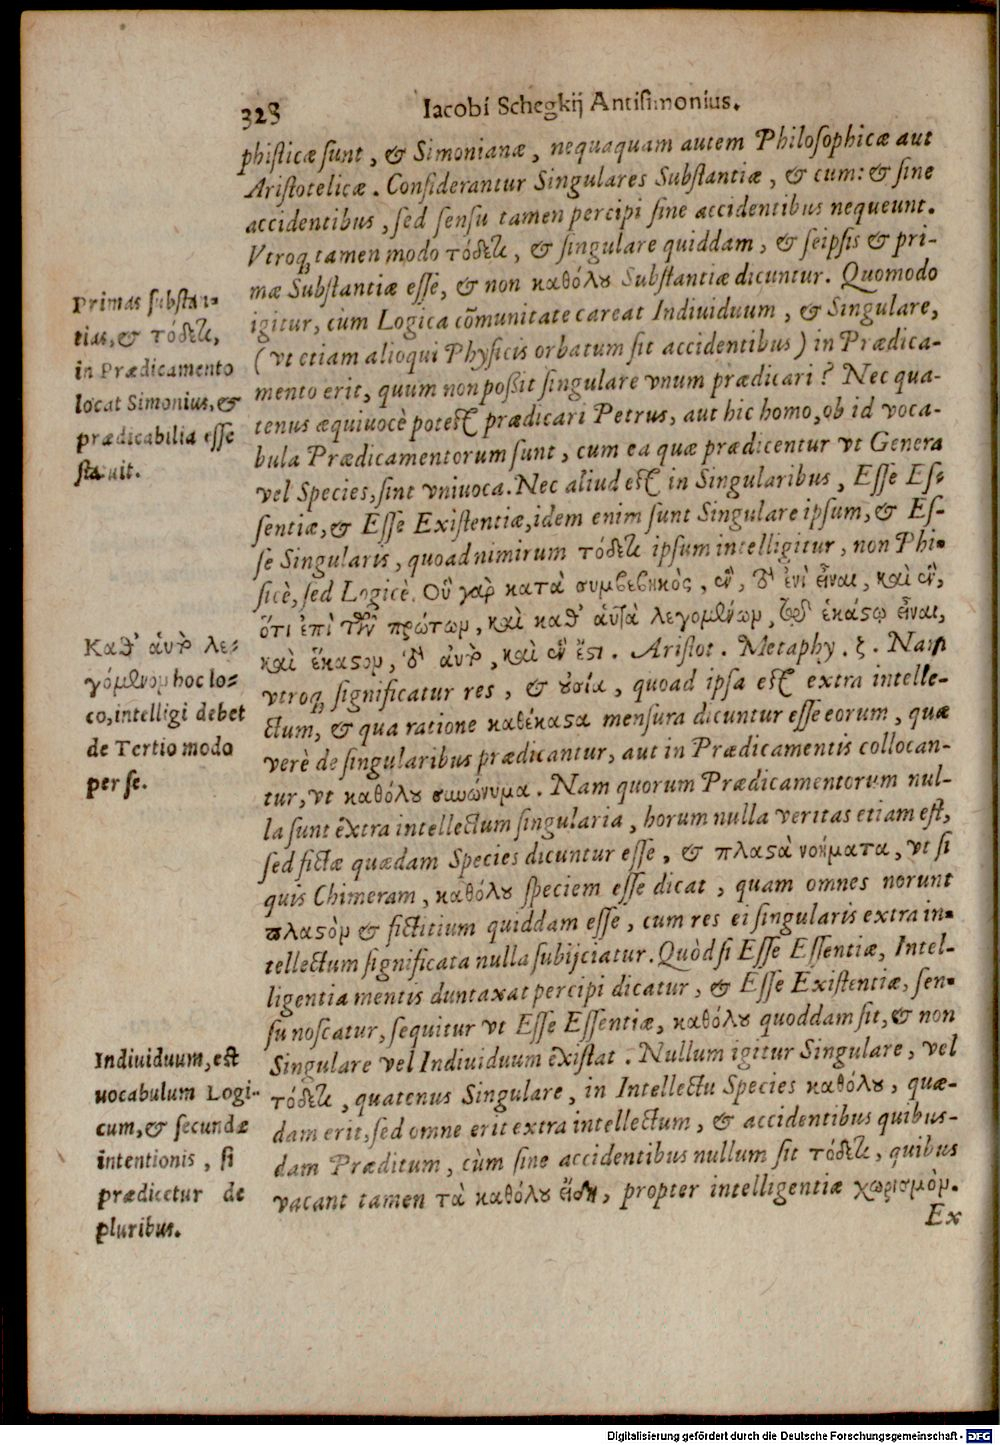 328
Iacobi Schegkij Antisimonius.
phisticæ sunt, & Simonianæ, nequaquam autem Philosophicæ aut
Aristotelicæ. Considerantur Singulares Substantiæ, & cum: & sine
accidentibus, sed sensu tamen percipi sine accidentibus nequeunt.
Vtroq; tamen modo τόδε τι, & singulare quiddam, & seipsis & pri-
mæ Substantiæ esse, & non καθόλου Substantiæ dicuntur. Quomodo
igitur, cùm Logica cōmunitate careat Indiuiduum, & Singulare,
(vt etiam alioqui Physicis orbatum sit accidentibus) in Prædica-
mento erit, quum non poßit singulare vnum prædicari? Nec qua-
tenus æquiuocè potest prædicari Petrus, aut hic homo, ob id voca-
bula Prædicamentorum sunt, cum ea quæ prædicentur vt Genera
vel Species, sint vniuoca. Nec aliud est in Singularibus, Esse Es-
sentiæ, & Esse Existentiæ, idem enim sunt Singulare ipsum, & Es-
se Singularis, quoad nimirum τόδε τι ipsum intelligitur, non Phi-
sicè, sed Logicè. Οὐ γὰρ κατὰ συμβεβηκὸς, ἓν, τὸ ἑνὶ εἶναι, καὶ ἓν,
ὅτι ἐπὶ τῶν πρώτων, καὶ καθ' αὑτὰ λεγομένων, τὸ ἑκάστῳ εἶναι,
καὶ ἕκαστον, τὸ αὐτὸ, καὶ ἕν ἐστι. Aristot. Metaphy. ζ. Nam
vtroq; significatur res, & οὐσία, quoad ipsa est extra intelle-
ctum, & qua ratione καθέκαστα mensura dicuntur esse eorum, quæ
verè de singularibus prædicantur, aut in Prædicamentis collocan-
tur, vt καθόλου συνώνυμα. Nam quorum Prædicamentorum nul-
la sunt extra intellectum singularia, horum nulla veritas etiam est,
sed fictæ quædam Species dicuntur esse, & πλαστὰ νοήματα, vt si
quis Chimeram, καθόλου speciem esse dicat, quam omnes norunt
πλαστὸν & fictitium quiddam esse, cum res ei singularis extra in-
tellectum significata nulla subijciatur. Quòd si Esse Essentiæ, Intel-
ligentia mentis duntaxat percipi dicatur, & Esse Existentiæ, sen-
su noscatur, sequitur vt Esse Essentiæ, καθόλου quoddam sit, & non
Singulare vel Indiuiduum existat. Nullum igitur Singulare, vel
τόδε τι, quatenus Singulare, in Intellectu Species καθόλου, quæ-
dam erit, sed omne erit extra intellectum, & accidentibus quibus-
dam Præditum, cùm sine accidentibus nullum sit τόδε τι, quibus
vacant tamen τὰ καθόλου εἴδη, propter intelligentiæ χωρισμόν.
Ex
Primas substan-
tias, & τόδε τι,
in Prædicamento
locat Simonius, &
prædicabilia esse
statuit.
Καθ' αὑτὸ λε-
γόμενον hoc lo-
co, intelligi debet
de Tertio modo
per se.
Indiuiduum, est
uocabulum Logi-
cum, & secundæ
intentionis, si
prædicetur de
pluribus.
Digitalisierung gefördert durch die Deutsche Forschungsgemeinschaft - DFG